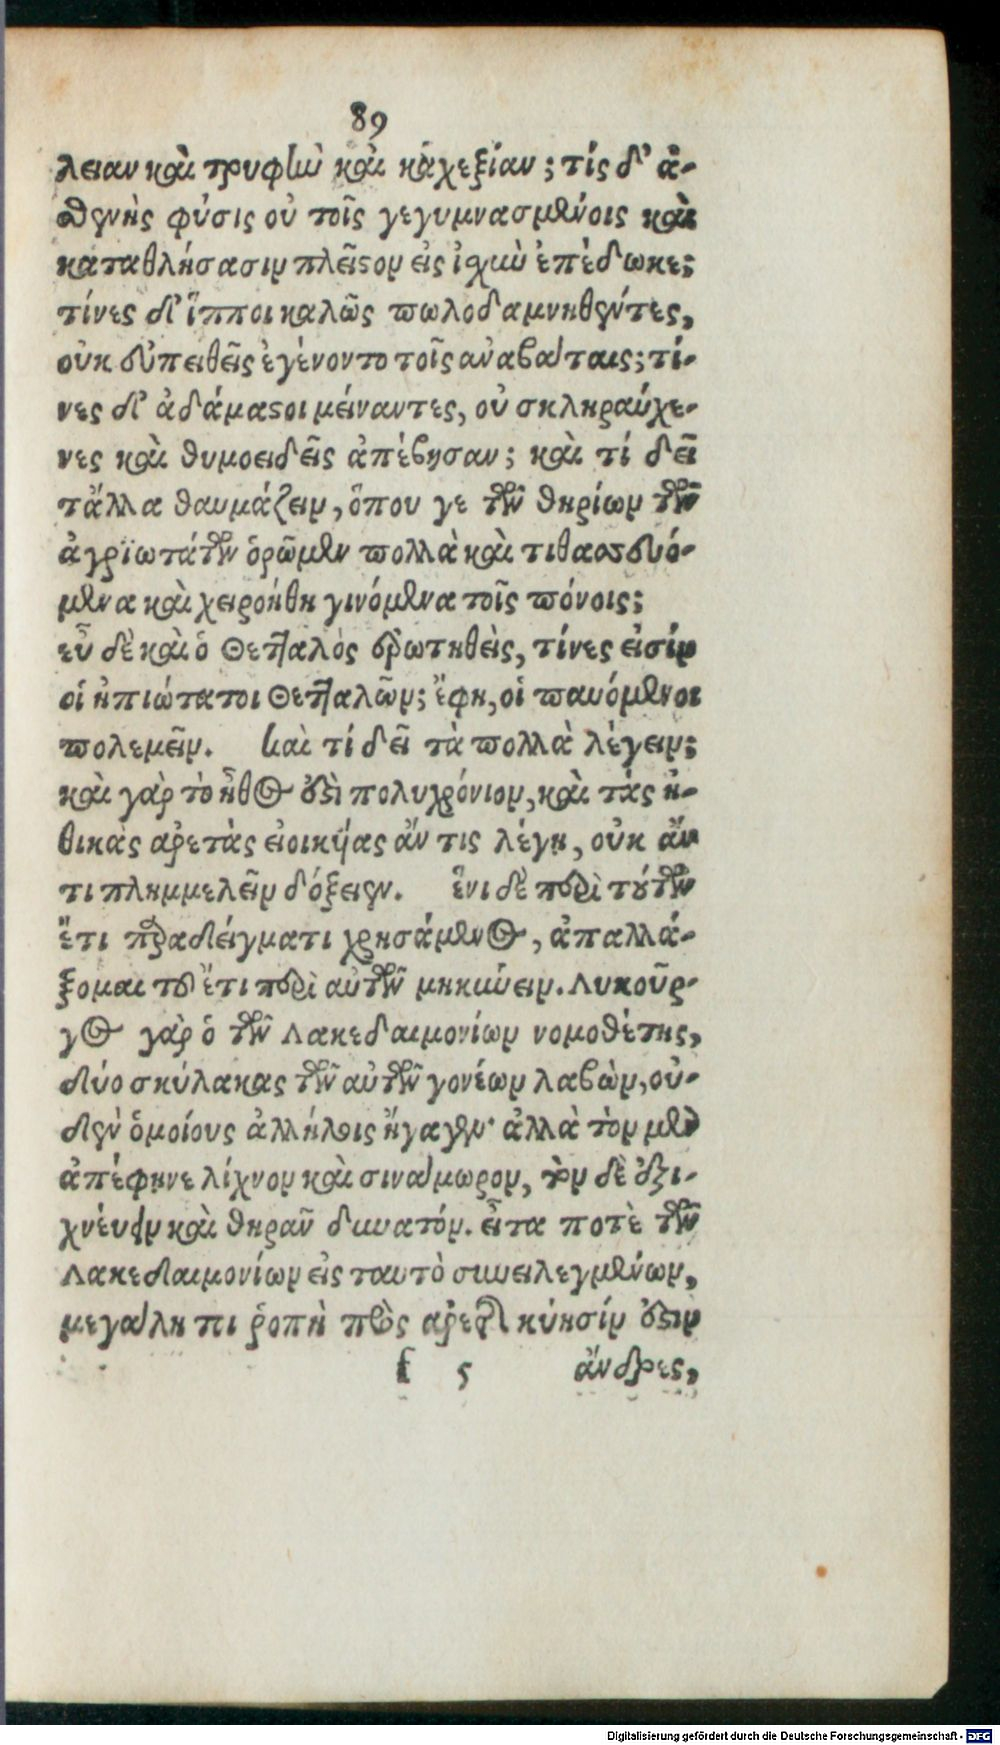 89
λειαν καὶ τρυφὴν καὶ καχεξίαν; τίς δ' ἀ-
σθενὴς φύσις οὐ τοῖς γεγυμνασμένοις καὶ
καταθλήσασιν πλεῖστον εἰς ἰσχὺν ἐπέδωκε;
τίνες δ' ἵπποι καλῶς πωλοδαμνηθέντες,
οὐκ εὐπειθεῖς ἐγένοντο τοῖς ἀναβάταις; τί-
νες δ' ἀδάμαστοι μείναντες, οὐ σκληραύχε-
νες καὶ θυμοειδεῖς ἀπέβησαν; καὶ τί δεῖ
τἄλλα θαυμάζειν, ὅπου γε τῶν θηρίων τῶν
ἀγριωτάτων ὁρῶμεν πολλὰ καὶ τιθασσευό-
μενα καὶ χειροήθη γινόμενα τοῖς πόνοις;
εὖ δὲ καὶ ὁ Θετταλὸς ἐρωτηθεὶς, τίνες εἰσὶν
οἱ ἠπιώτατοι Θετταλῶν; ἔφη, οἱ παυόμενοι
πολεμεῖν. καὶ τί δεῖ τὰ πολλὰ λέγειν;
καὶ γὰρ τὸ ἦθος ἐστὶ πολυχρόνιον, καὶ τάς ἠ-
θικὰς ἀρετὰς ἐοικυίας ἄν τις λέγῃ, οὐκ ἄν
τι πλημμελεῖν δόξειεν. ἑνὶ δὲ περὶ τούτων
ἔτι παραδείγματι χρησάμενος, ἀπαλλά-
ξομαι τοῦ ἔτι περὶ αὐτῶν μηκύνειν. Λυκοῦρ-
γος γὰρ ὁ τῶν Λακεδαιμονίων νομοθέτης,
δύο σκύλακας τῶν αὐτῶν γονέων λαβὼν, οὐ-
δὲν ὁμοίους ἀλλήλοις ἤγαγεν· ἀλλὰ τὸν μὲν
ἀπέφηνε λίχνον καὶ σινάμωρον, τὸν δὲ ἐξι-
χνεύειν καὶ θηρᾶν δυνατόν. εἶτα ποτὲ τῶν
Λακεδαιμονίων εἰς ταυτὸ συνειλεγμένων,
μεγάλη τι ῥοπὴ πρὸς ἀρετῆς κύησίν ἐστιν
f 5 ἄνδρες,
Digitalisierung gefördert durch die Deutsche Forschungsgemeinschaft - DFG